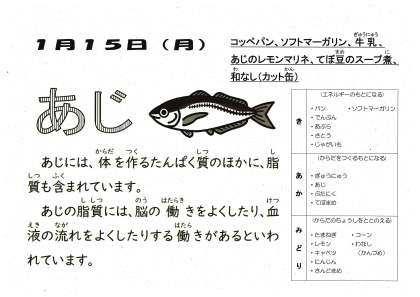 1月15日（月）
コッペパン、ソフトマーガリン、牛乳、
あじのレモンマリネ、てぼ豆のスープ煮、
和なし（カット缶）
あじ
あじには、体を作るたんぱく質のほかに、脂
質も含まれています。
あじの脂質には、脳の働きをよくしたり、血
液の流れをよくしたりする働きがあるといわ
れています。
き
（エネルギーのもとになる）
・パン ・ソフトマーガリン
・でんぷん
・あぶら
・さとう
・じゃがいも
あか
（からだをつくるもとになる）
・ぎゅうにゅう
・あじ
・ぶたにく
・てぼまめ
みどり
（からだのちょうしをととのえる）
・たまねぎ ・コーン
・レモン ・わなし
・キャベツ （かんづめ）
・にんじん
・さんどまめ